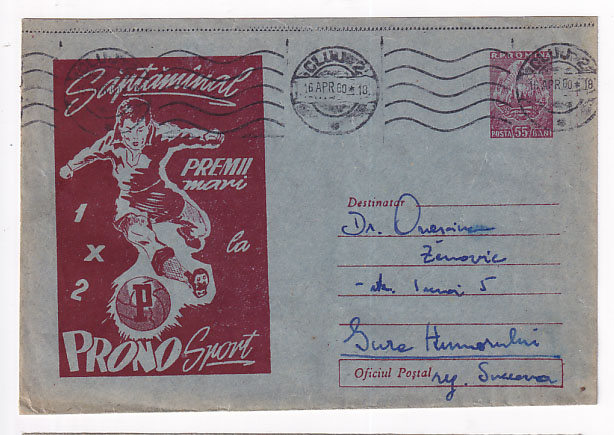 Săptămînal
PREMII
mari
1
X
2
la
P
PRONO Sport
CLUJ 2
16 APR 60 * 18
R.P. ROMÎNA
POSTA 55 BANI
CLUJ 2
16 APR 60 * 18
Destinatar
Dr.
Zenovic
5
Gura Humorului
Oficiul Poștal
reg. Suceava